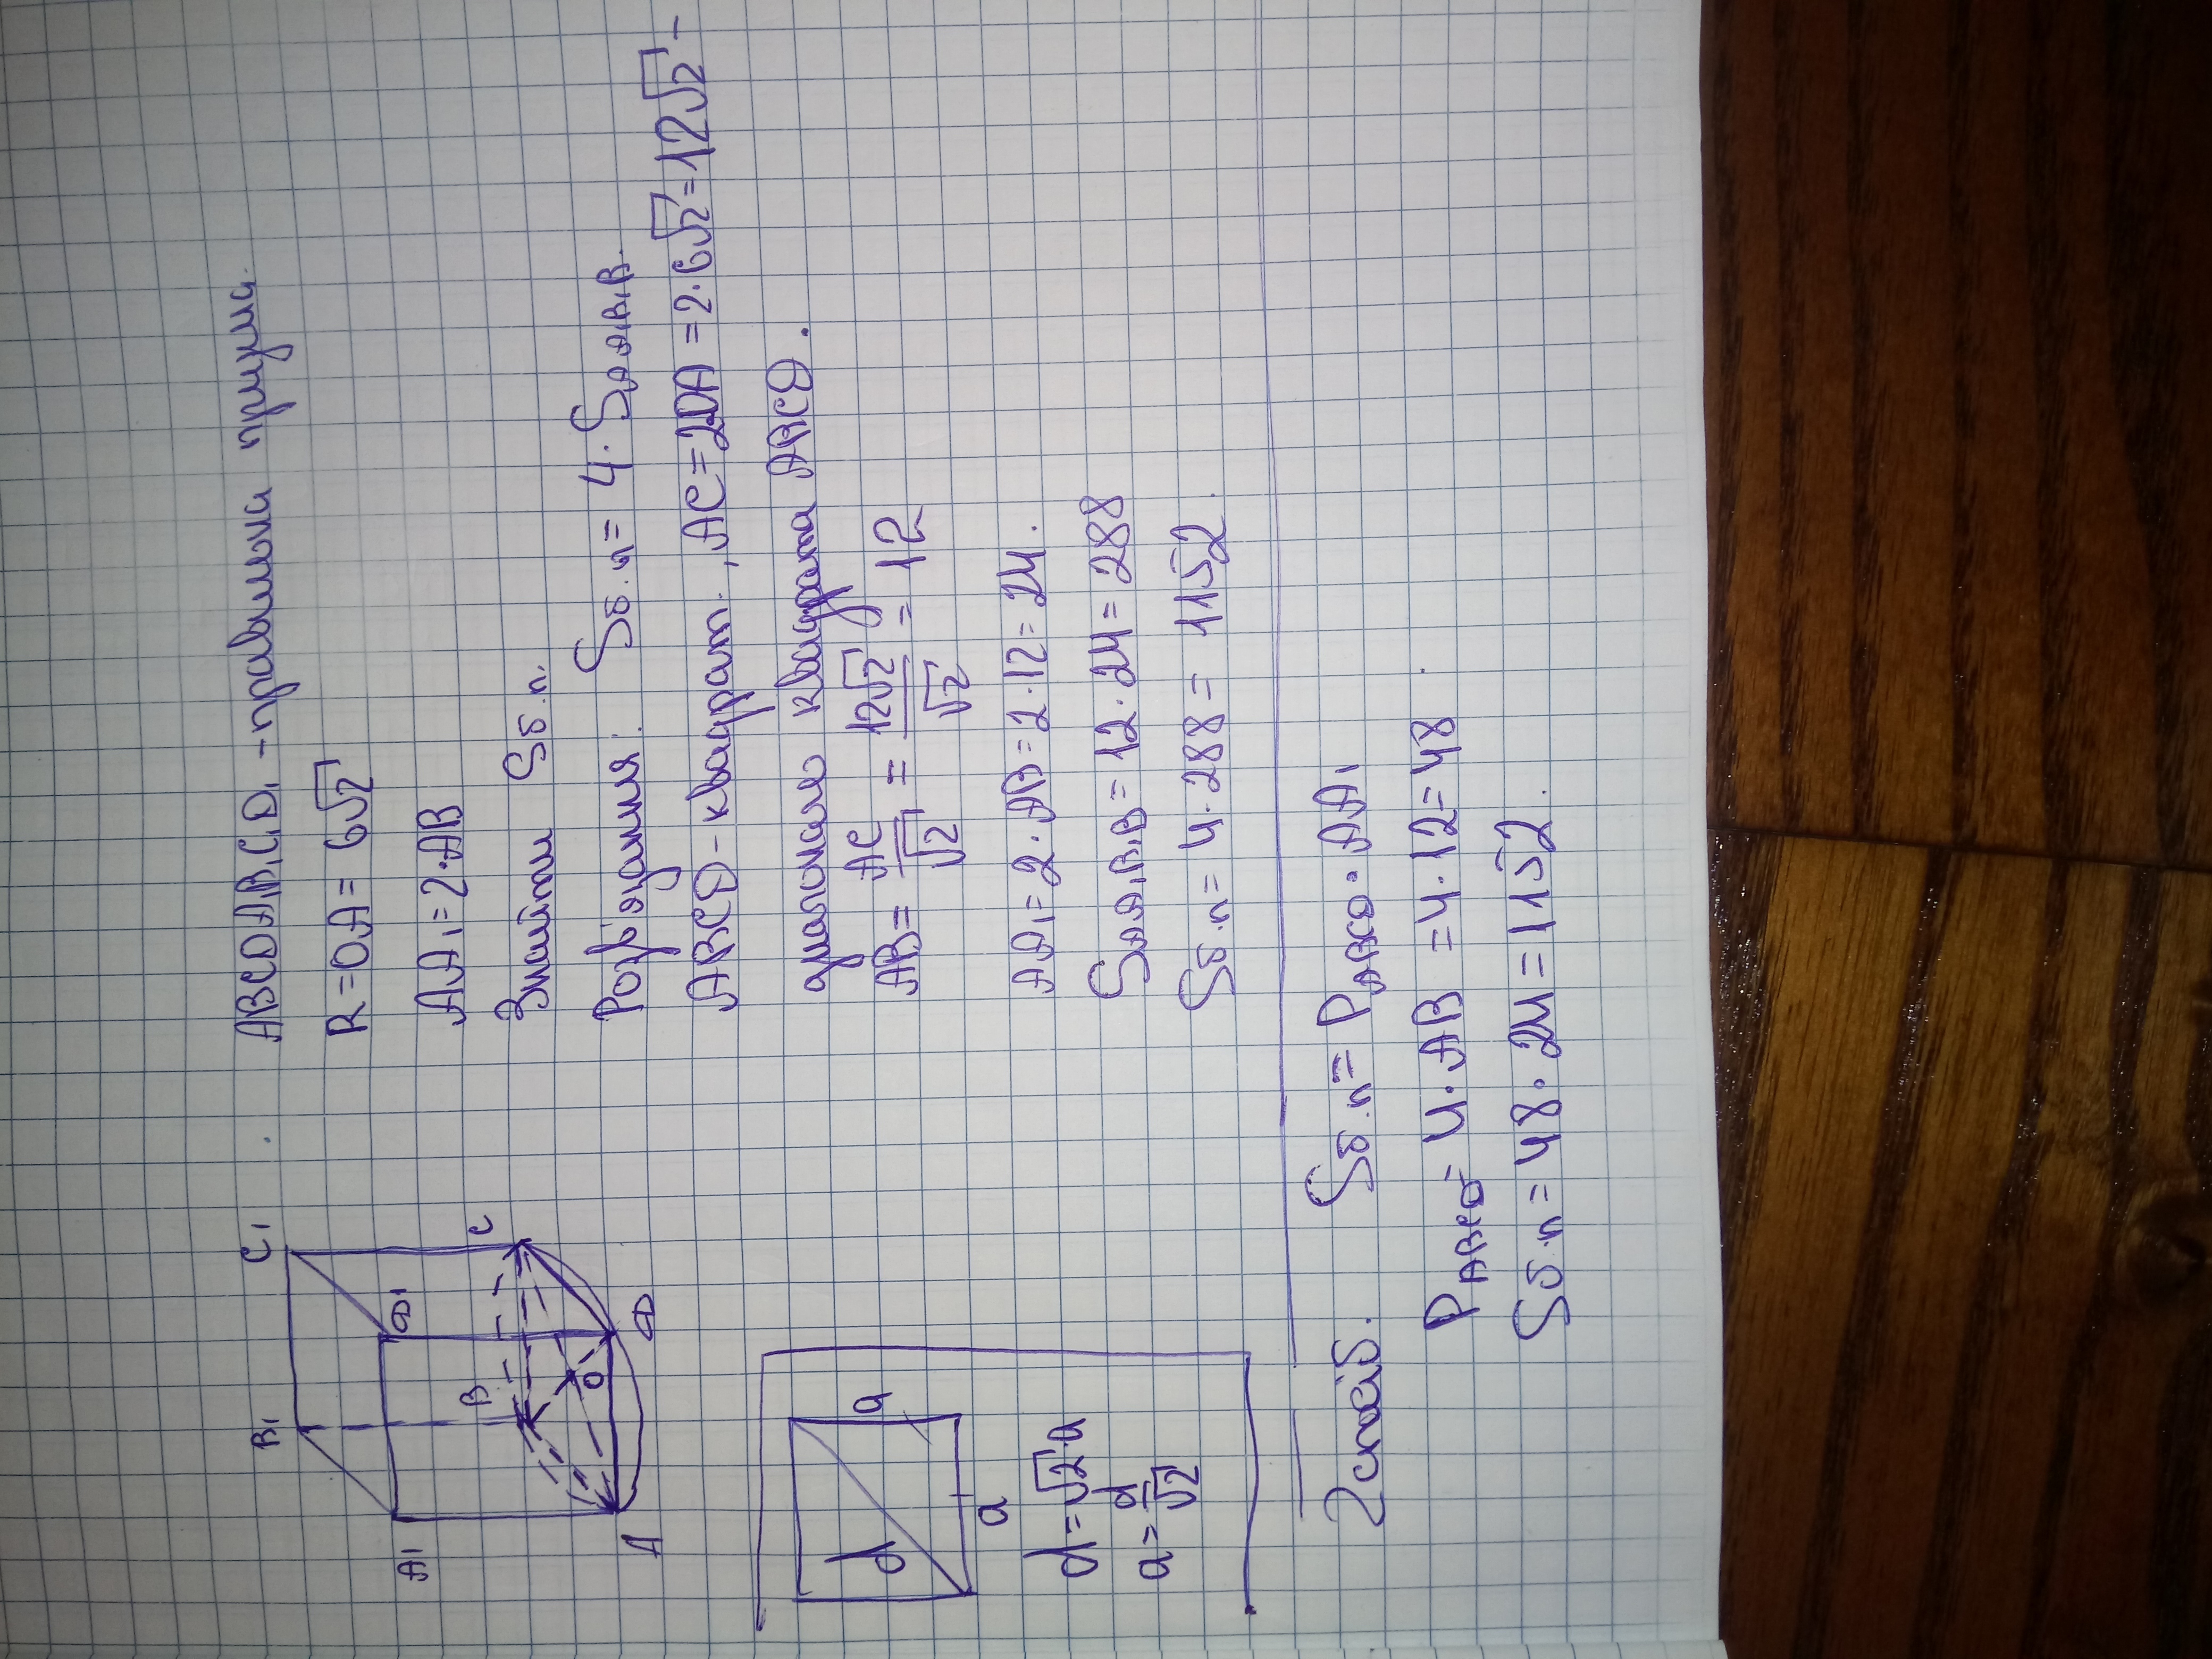 ABCDA₁B₁C₁D₁ - правильна призма.
R = OA = 6√2
AA₁ = 2·AB
Знайти Sб.п.
Розв'язання: Sб.п = 4·SAA₁B₁B.
ABCD - квадрат., AC = 2OA = 2·6√2 = 12√2 -
діагональ квадрата ABCD.
AB = AC/√2 = 12√2/√2 = 12
AA₁ = 2·AB = 2·12 = 24.
SAA₁B₁B = 12·24 = 288
Sб.п = 4·288 = 1152.
B₁
C₁
A₁
D₁
B
C
O
A
D
d
a
a
d = √2 a
a = d/√2
2 спосіб. Sб.п = PABCD·AA₁
PABCD = 4·AB = 4·12 = 48.
Sб.п = 48·24 = 1152.